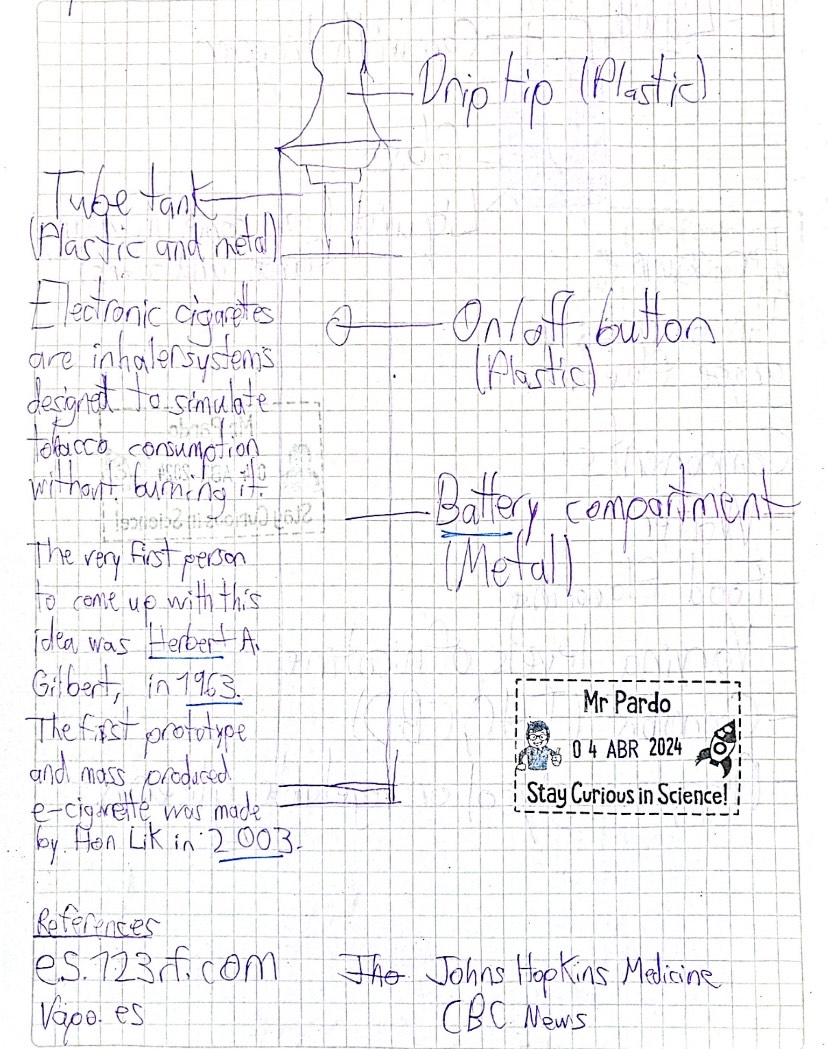 Drip tip (Plastic)
Tube tank
(Plastic and metal)
Electronic cigarettes
are inhaler systems
designed to simulate
tobacco consumption
without burning it.
On/off button
(Plastic)
Battery compartment
(Metal)
The very first person
to come up with this
idea was Herbert A.
Gilbert, in 1963.
The first prototype
and mass produced
e-cigarette was made
by Hon Lik in 2003.
Mr Pardo
04 ABR 2024
Stay Curious in Science!
References
es.123rf.com
Vapo.es
The Johns Hopkins Medicine
CBC News